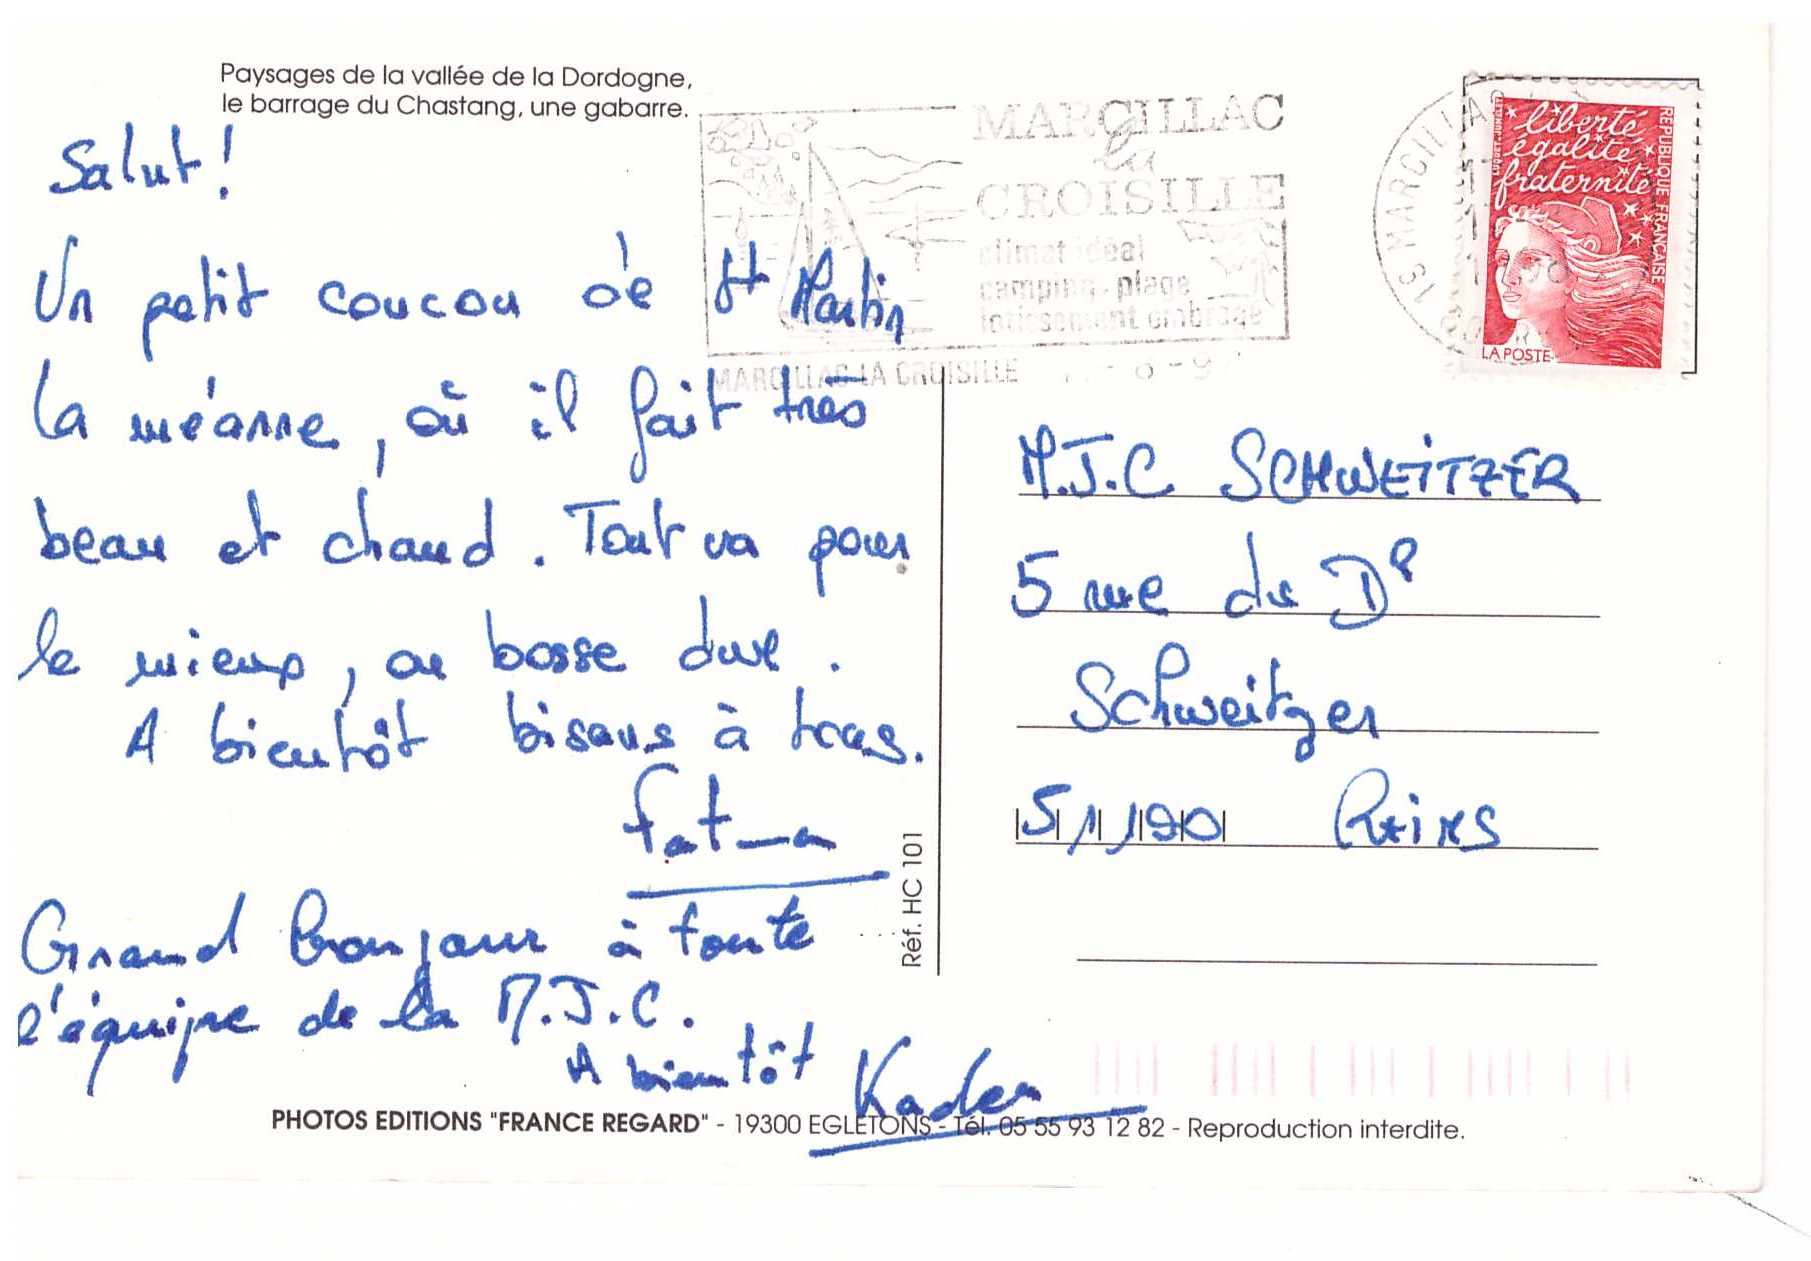 Paysages de la vallée de la Dordogne,
le barrage du Chastang, une gabarre.
Salut !
Un petit coucou de St Martin
la méanne, où il fait très
beau et chaud. Tout va pour
le mieux, on bosse dur.
A bientôt bisous à tous.
Fatma
Grand bonjour à toute
l'équipe de la M.J.C.
A bientôt Kader
MARCILLAC
la
CROISILLE
climat idéal
camping - plage
lotissement ombragé
MARCILLAC LA CROISILLE
19 MARCILLAC
liberté
égalité
fraternité
REPUBLIQUE FRANÇAISE
LA POSTE
M.J.C SCHWEITZER
5 rue du Dr
Schweitzer
51100 Reims
Réf. HC 101
PHOTOS EDITIONS "FRANCE REGARD" - 19300 EGLETONS - Tél. 05 55 93 12 82 - Reproduction interdite.